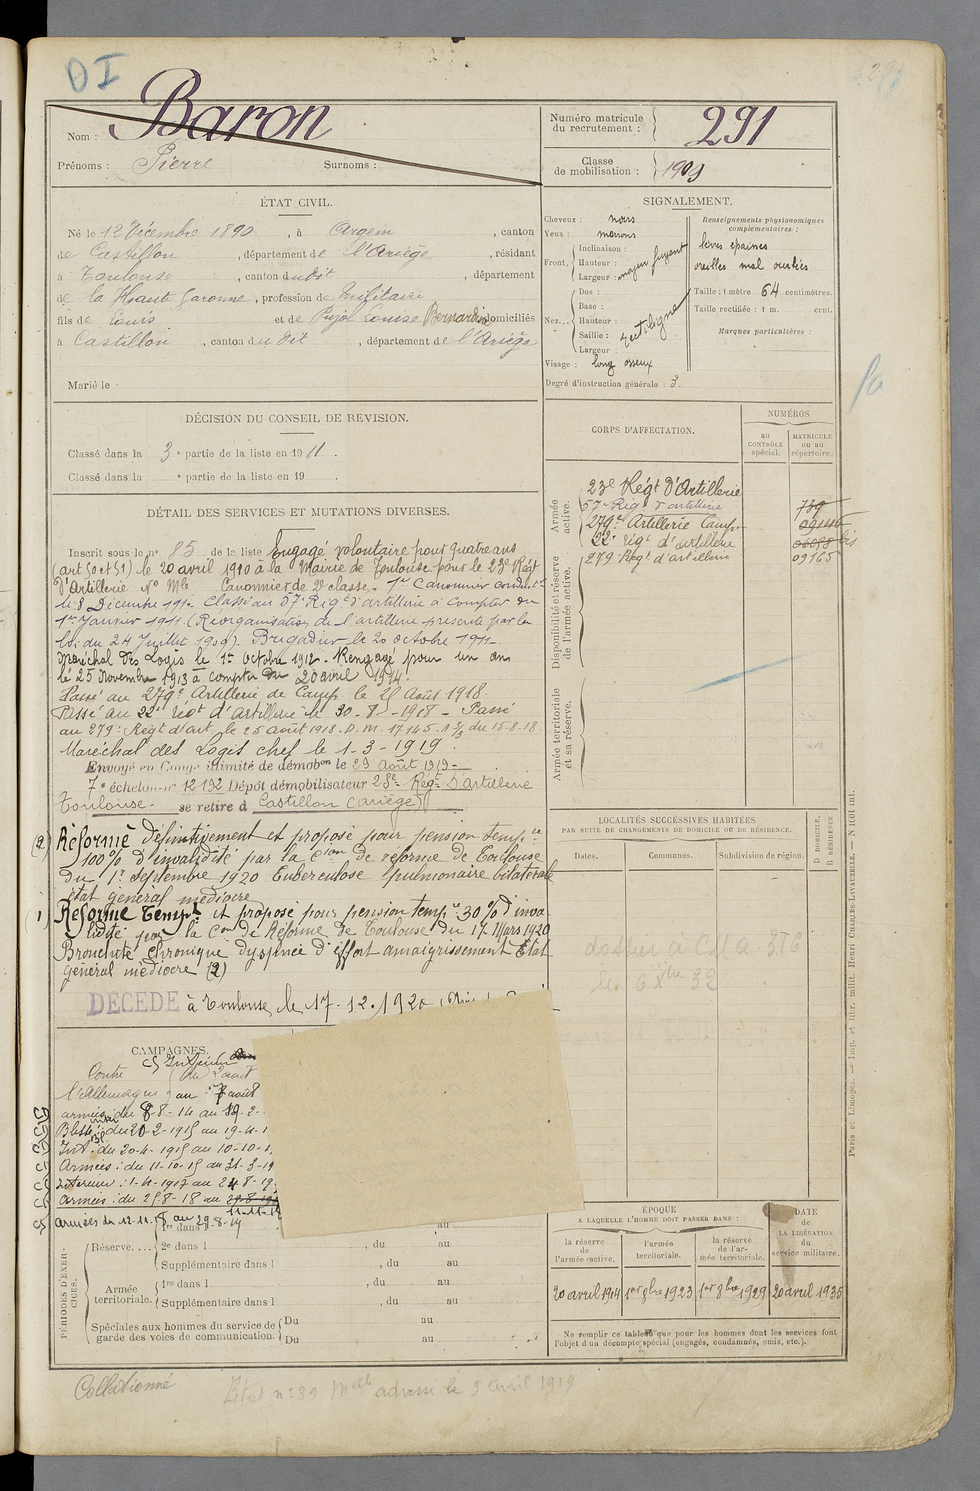 DI
Nom : Baron
Prénoms : Pierre Surnoms :
Numéro matricule du recrutement : 291
Classe de mobilisation : 1909
ÉTAT CIVIL.
Né le 12 Décembre 1890, à Argein, canton
de Castillon, département de l'Ariège, résidant
à Toulouse, canton dudit, département
de la Haut Garonne, profession de Militaire
fils de Louis et de Pujol Louise Bernardine domiciliés
à Castillon, canton dudit, département de l'Ariège
Marié le
SIGNALEMENT.
Cheveux : noirs
Yeux : marrons
Front. Inclinaison :
Hauteur : moyen fuyant
Largeur :
Nez... Dos :
Base :
Hauteur : rectiligne
Saillie :
Largeur :
Visage : long osseux
Degré d'instruction générale : 3.
Renseignements physionomiques
complémentaires :
lèvres épaisses
oreilles mal ourlées
Taille : 1 mètre 64 centimètres.
Taille rectifiée : 1 m. cent.
Marques particulières :
DÉCISION DU CONSEIL DE REVISION.
Classé dans la 3e partie de la liste en 1911.
Classé dans la e partie de la liste en 19 .
DÉTAIL DES SERVICES ET MUTATIONS DIVERSES.
Inscrit sous le n° 85 de la liste Engagé volontaire pour quatre ans
(art 50 et 51) le 20 avril 1910 à la Mairie de Toulouse pour le 23e Régt
d'Artillerie N° Mle Canonnier de 2e classe. 1er Canonnier conduct
le 8 Décembre 1910. Classé au 57e Régt d'artillerie à compter du
1er Janvier 1911 (Réorganisation de l'artillerie prescrite par la
loi du 24 Juillet 1909). Brigadier le 20 octobre 1911
Maréchal des Logis le 1er octobre 1912. Rengagé pour un an
le 25 Novembre 1913 à compter du 20 avril 1914.
Passé au 279e Artillerie de Camp. le 25 Août 1918.
Passé au 22e régt d'artillerie le 30-8-1918 - Passé
au 279e Régt d'art. le 25 août 1918. D.M. 17145. 1 2/3 du 15-8-18
Maréchal des Logis chef le 1-3-1919.
Envoyé en Congé illimité de démobon le 29 Août 1919
7e échelon n° 12192 Dépôt démobilisateur 23e Régt d'artillerie
Toulouse - se retire à Castillon (Ariège)
(2) Réformé définitivement et proposé pour pension tempre
100% d'invalidité par la Cion de réforme de Toulouse
du 1er Septembre 1920 Tuberculose pulmonaire bilatérale
état général médiocre
(1) Réformé Tempt et proposé pour pension tempre 30% d'inva
lidité par la Con de Réforme de Toulouse du 17 Mars 1920
Bronchite chronique dyspnée d'effort amaigrissement État
général médiocre (2)
DÉCÉDÉ à Toulouse le 17-12-1920
CORPS D'AFFECTATION.
NUMÉROS
AU CONTRÔLE spécial.
MATRICULE OU AU répertoire.
Armée active.
23e Régt d'Artillerie 739
57e Régt d'artillerie
279e Artillerie Camp.
22e régt d'artillerie bis
279 Régt d'artillerie 09165
Disponibilité et réserve de l'armée active.
Armée territoriale et sa réserve.
LOCALITÉS SUCCESSIVES HABITÉES
PAR SUITE DE CHANGEMENTS DE DOMICILE OU DE RÉSIDENCE.
Dates. Communes. Subdivision de région.
D. DOMICILE. R. RÉSIDENCE.
dossier à CM
CAMPAGNES.
Contre
l'Allemagne
armées du 8-8-14 au 19-2-
Blessé du 20-2-1915 au 19-4-1
Int. du 20-4-1915 au 10-10-1
Armées : du 11-10-15 au 31-3-19
Intérieur : 1-4-1917 au 24-8-19
armées : du 25-8-18 au
11-11-18
armées du 12.11.18 au 29-8-19
PÉRIODES D'EXERCICES.
1re dans l au
Réserve.... 2e dans l , du au
Supplémentaire dans l , du au
Armée territoriale. 1re dans l , du au
Supplémentaire dans l , du au
Spéciales aux hommes du service de Du au
garde des voies de communication. Du au
ÉPOQUE
A LAQUELLE L'HOMME DOIT PASSER DANS :
la réserve de l'armée active.
l'armée territoriale.
la réserve de l'armée territoriale.
DATE DE LA LIBÉRATION du service militaire.
20 avril 1914 1er 8bre 1923 1er 8bre 1929 20 avril 1935
Ne remplir ce tableau que pour les hommes dont les services font
l'objet d'un décompte spécial (engagés, condamnés, omis, etc.).
Paris et Limoges. — Imp. et libr. milit. Henri CHARLES-LAVAUZELLE.
Collationné
État n° 31 adressé le 9 avril 1919